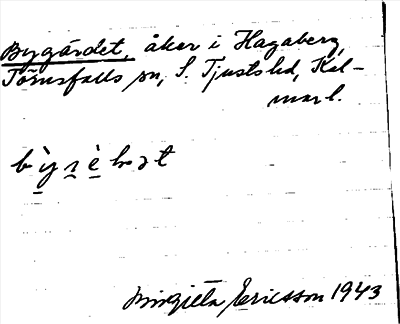 Bygärdet, åker i Hagaberg,
Törnsfalls sn, S. Tjusts hd, Kal-
mar l.
Birgitta Ericsson 1943